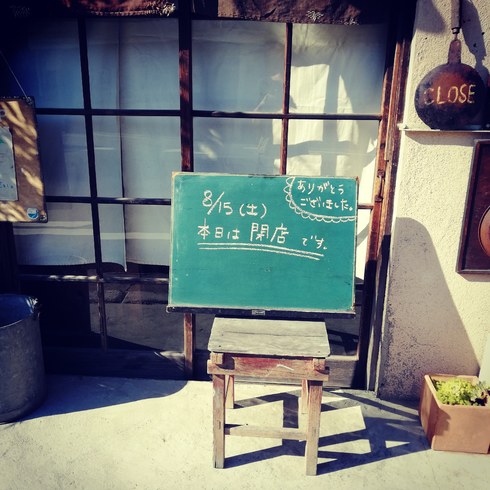 8/15(土)
本日は 閉店 です。
ありがとう
ございました。
CLOSE